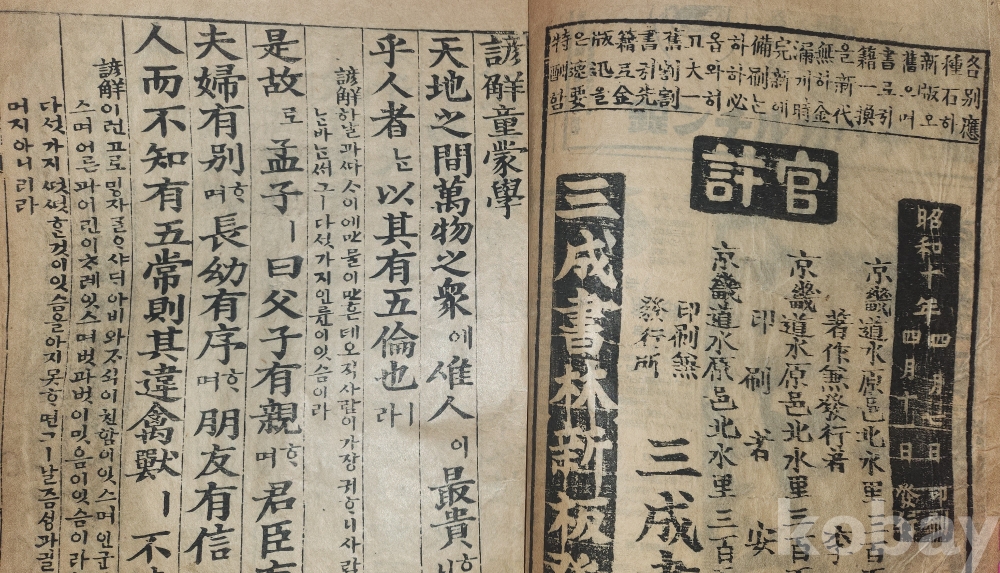 各別應
種石하
新版오
舊으며
書로引
籍一換
을新代
無하金
漏게時
完新에
備刷는
하하必
옵와히
고大一
舊割割
書引先
籍五金
版迅을
은速要
特酬한
官許
昭和十年四月七日 印刷
四月十一日 發行
京畿道水原邑北水里三百
著作兼發行者 李
京畿道水原邑北水里三百
印刷者 安
京畿道水原邑北水里三百
印刷兼
發行所
三成
三成書林新板
諺解童蒙學
天地之間萬物之衆에 惟人이 最貴ᄒᆞ
乎人者ᄂᆞᆫ 以其有五倫也ㅣ라
諺解 하날과ᄯᅡ ᄉᆞ이에만물이만은데오직사람이가장귀ᄒᆞ니사람
ᄂᆞᆫ바ᄂᆞᆫ써그ㅣ다섯가지인륜이잇슴이라
是故로 孟子ㅣ曰父子有親ᄒᆞ며 君臣有
夫婦有別ᄒᆞ며 長幼有序ᄒᆞ며 朋友有信
人而不知有五常則其違禽獸ㅣ 不
諺解 이런고로밍자ᄀᆞᆯᄋᆞ샤ᄃᆡ아비와ᄌᆞ식이친함이잇스며인군
스며어른과어린이ᄎᆞ례잇스며벗과벗이밋음이잇슴이라
다섯가지ᄯᅥᆺᄯᅥᆺᄒᆞᆫ것이잇슴을아지못ᄒᆞ면그ㅣ날즘ᄉᆡᆼ과길
머지아니리라
kobay